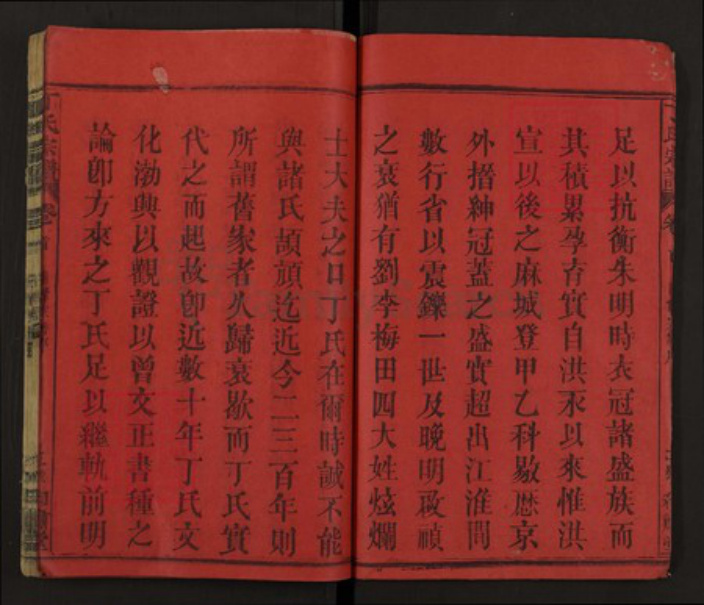 足以抗衡朱明時衣冠諸盛族而
其積累孕育實自洪永以來惟洪
宣以後之麻城登甲乙科敭歷京
外搢紳冠蓋之盛實超出江淮間
數行省以震鑠一世及晚明啟禎
之衰猶有劉李梅田四大姓炫爛
士大夫之口丁氏在爾時誠不能
與諸氏頡頏迄近今二三百年則
所謂舊家者久歸衰歇而丁氏實
代之而起故卽近數十年丁氏文
化渤興以觀證以曾文正書種之
論卽方來之丁氏足以繼軌前明